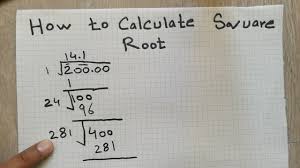 How to Calculate Square
Root
14.1
1 √200.00
1
24 √100
96
281 √400
281